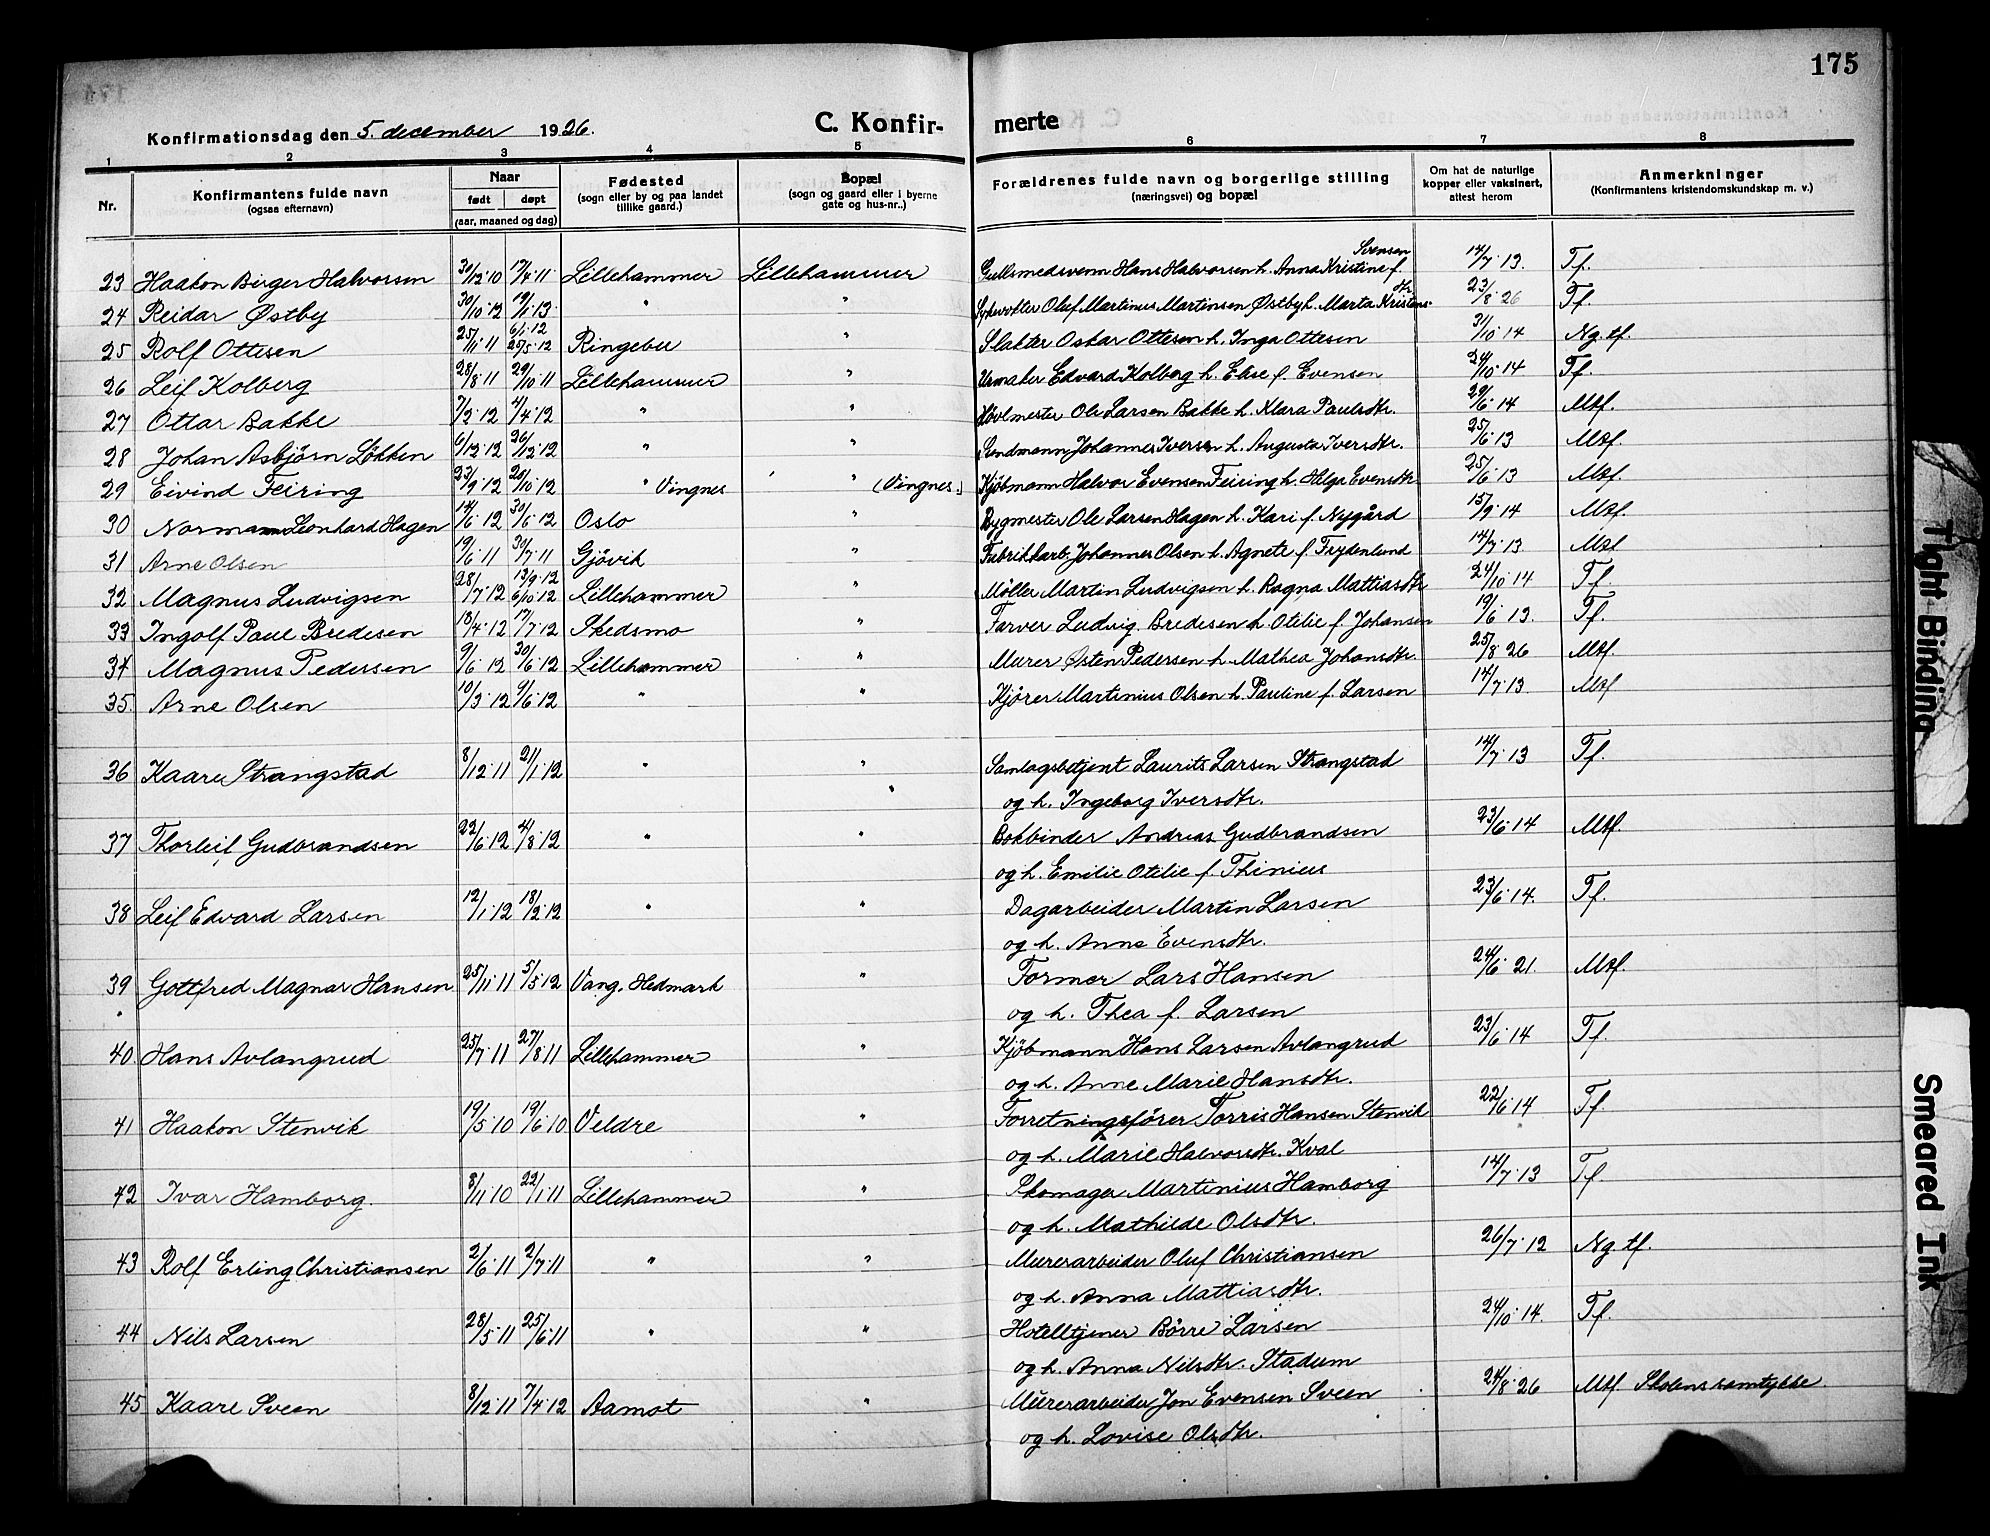 175
Konfirmationsdag den 5. december 1926.
C. Konfir- merte
1 2 3 4 5 6 7 8
Nr.
Konfirmantens fulde navn
(ogsaa efternavn)
Naar
født døpt
(aar, maaned og dag)
Fødested
(sogn eller by og paa landet
tillike gaard.)
Bopæl
(sogn og gaard eller i byerne
gate og hus-nr..)
Forældrenes fulde navn og borgerlige stilling
(næringsvei) og bopæl
Om hat de naturlige
kopper eller vaksinert,
attest herom
Anmerkninger
(Konfirmantens kristendomskundskap m. v.)
Sörensen
23 Haakon Birger Halvorsen 30/12·10 17/4·11 Lillehammer Lillehammer Gullsmedsvenn Hans Halvorsen h. Anna Kristine f. 14/7·13. Tf.
dtr.
24 Reidar Østby 30/10·12 19/1·13 " " Sykevokter Oluf Martinus Martinsen Østby h. Marta Kristens- 23/8·26 Tf.
6/1·12
25 Rolf Ottesen 25/11·11 25/5·12 Ringebu " Slakter Oskar Ottesen h. Inga Ottesen 31/10·14 Ng. tf.
26 Leif Kolberg 28/8·11 29/10·11 Lillehammer " Urmaker Edvard Kolberg h. Elise f. Evensen 24/10·14 Tf.
27 Ottar Bakke 7/2·12 4/4·12 " " Høvlmester Ole Larsen Bakke h. Klara Paulsdtr. 29/6·14 Mtf.
28 Johan Asbjørn Løkken 6/12·12 26/12·12 " " Sendmann Johannes Iversen h. Augusta Iversdtr. 25/6·13 Mtf.
29 Eivind Feiring 23/9·12 20/10·12 " Vingnes " (Vingnes.) Kjøbmann Halvor Evensen Feiring h. Helga Evensdtr. 25/6·13 Mtf.
30 Normann Leonhard Hagen 14/6·12 30/6·12 Oslo " Bygmester Ole Larsen Hagen h. Kari f. Nygård 15/9·14 Mtf.
31 Arne Olsen 19/6·11 30/7·11 Gjøvik " Fabrikkarb. Johannes Olsen h. Agnete f. Frydenlund 14/7·13 Mtf
13/9·12
32 Magnus Ludvigsen 28/7·12 6/10·12 Lillehammer " Møller Martin Ludvigsen h. Ragna Mattiasdtr 24/10·14 Tf.
33 Ingolf Paul Bredesen 18/4·12 17/7·12 Skedsmo " Farver Ludvig Bredesen h. Otilie f. Johansen 19/6·13. Tf.
34 Magnus Pedersen 9/6·12 30/6·12 Lillehammer " Murer Østen Pedersen h. Mathea Johansdtr. 25/8·26 Mtf.
35. Arne Olsen 10/3·12 9/6·12 " " Kjører Martinius Olsen h. Pauline f. Larsen 14/7·13. Mtf
36 Kaare Strangstad 8/12·11 21/1·12 " " Samlagsbetjent Laurits Larsen Strangstad 14/7·13 Tf.
" og h. Ingeborg Iversdtr.
37 Thorleif Gudbrandsen 22/6·12 4/8·12 " " Bokbinder Andreas Gudbrandsen 23/6·14 Mtf.
og h. Emilie Otilie f. Thinius
38 Leif Edvard Larsen 12/1·12 18/2·12 " " Dagarbeider Martin Larsen 23/6·14. Tf.
og h. Anne Evensdtr.
39 Gottfred Magnar Hansen 25/11·11 5/5·12 Vang, Hedmark " Former Lars Hansen 24/6·21 Mtf.
og h. Thea f. Larsen
40 Hans Avlangrud 25/7·11 27/8·11 Lillehammer " Kjøbmann Hans Larsen Avlangrud 23/6·14 Tf.
og h. Anne Marie Hansdtr.
41 Haakon Stenvik 19/5·10 19/6·10 Veldre " Forretningsfører Torris Hansen Stenvik 22/6·14 Tf.
og h. Marie Halvorsdtr. Kval
42 Ivar Hamborg. 8/11·10 22/1·11 Lillehammer " Skomager Martinius Hamborg 14/7·13 Tf.
og h. Mathilde Olsdtr.
43 Rolf Erling Christiansen 2/6·11 2/7·11 " " Murerarbeider Oluf Christiansen 26/7·12 Ng tf.
og h. Anna Mattiasdtr.
44 Nils Larsen 28/5·11 25/6·11 " " Hotelltjener Børre Larsen 24/10·14. Tf.
og h. Anna Nilsdtr. Stadum
45 Kaare Sveen 8/12·11 7/4·12 Aamot " Murerarbeider Jon Evensen Sveen 24/8·26 Mtf. Skolens samtykke.
og h. Lovise Olsdtr.
Tight Binding
Smeared Ink